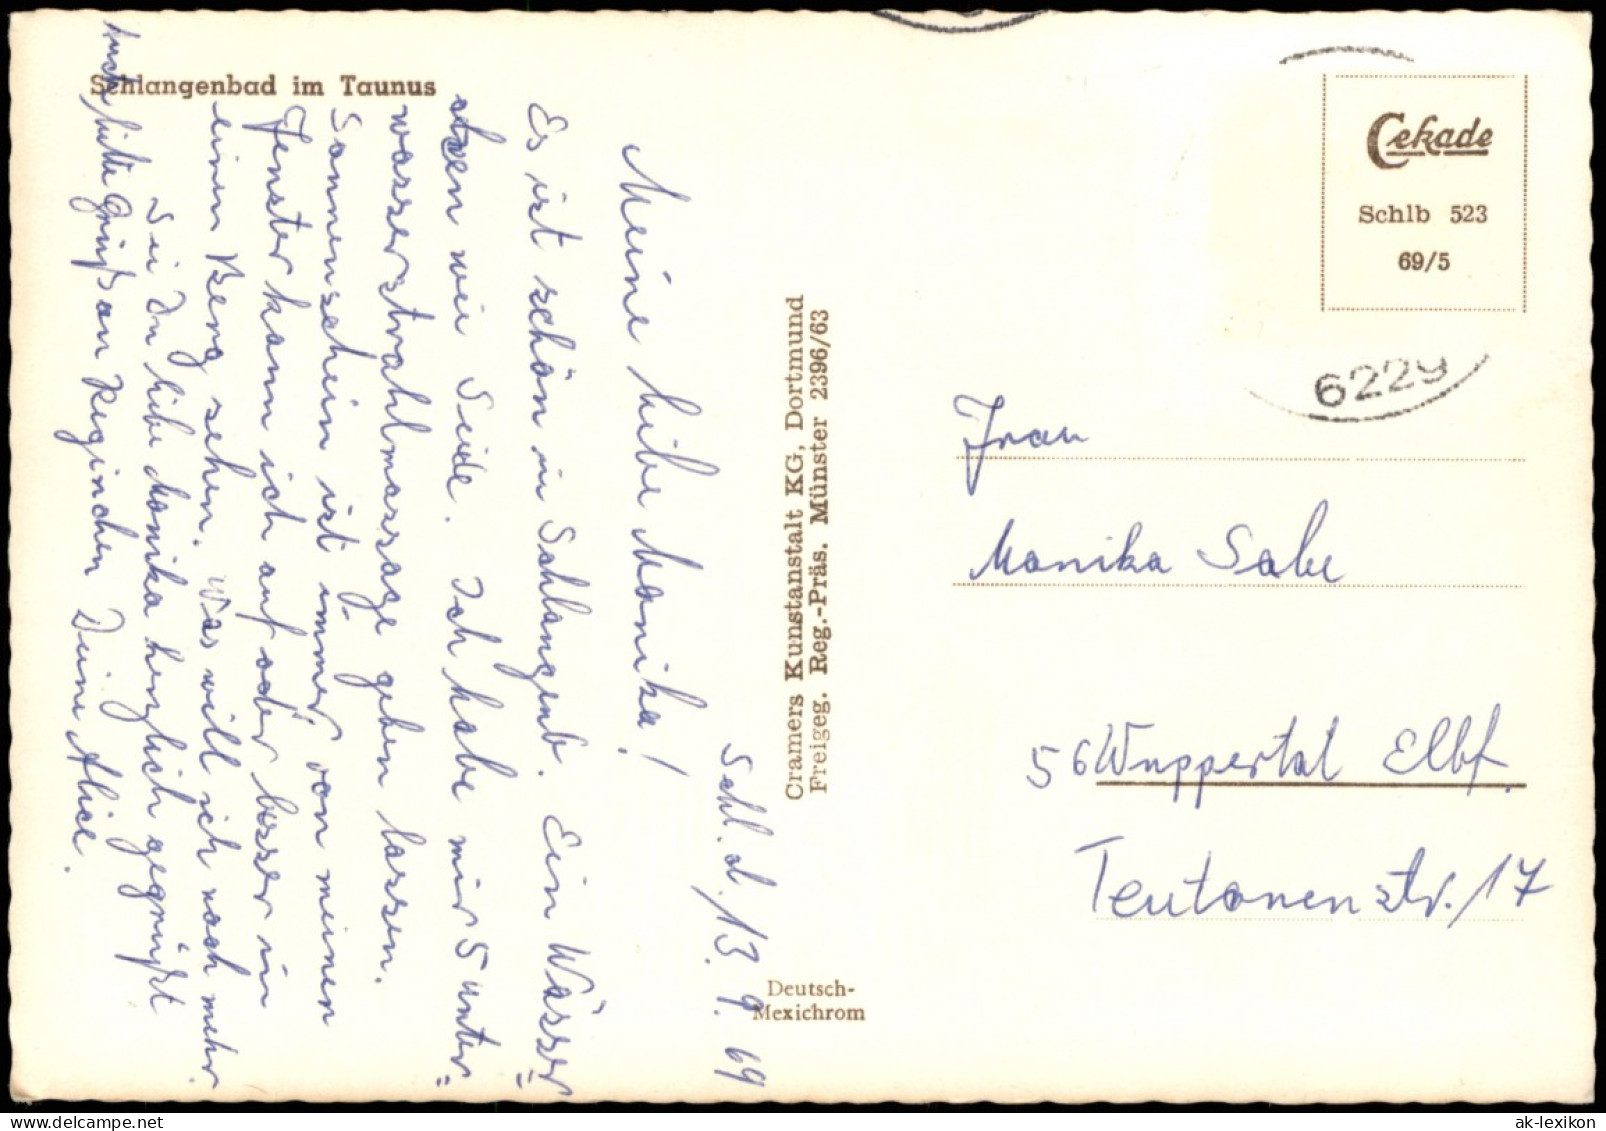 Schlangenbad im Taunus
Schl. d. 13. 9. 69
Meine liebe Monika!
Es ist schön in Schlangenb. Ein Wässer
wie Seide. Ich habe mir 5 unter=
wasserstrahlmassage geben lassen.
Sonnenschein ist immer, von meinen
Fenster kann ich auf oder besser in
einen Berg sehen. Was will ich noch mehr.
Sei Du liebe Monika herzlich gegrüßt
bitte Gruß an Reginchen Deine Alice.
Cramers Kunstanstalt KG, Dortmund
Freigeg. Reg.-Präs. Münster 2396/63
Deutsch-
Mexichrom
Cekade
Schlb 523
69/5
6229
Frau
Monika Sabe
56 Wuppertal Elbf.
Teutonenstr. 17
ak-lexikon.com